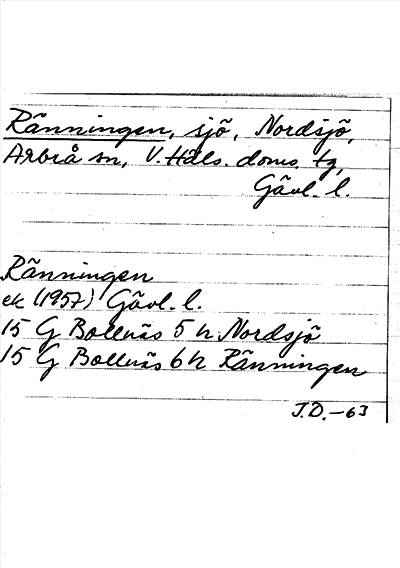 Ränningen, sjö, Nordsjö,
Arbrå sn, V. Häls. doms. tg,
Gävl. l.
Ränningen
ek (1957) Gävl. l.
15 G Bollnäs 5 h Nordsjö
15 G Bollnäs 6 h Ränningen
J.D. -63